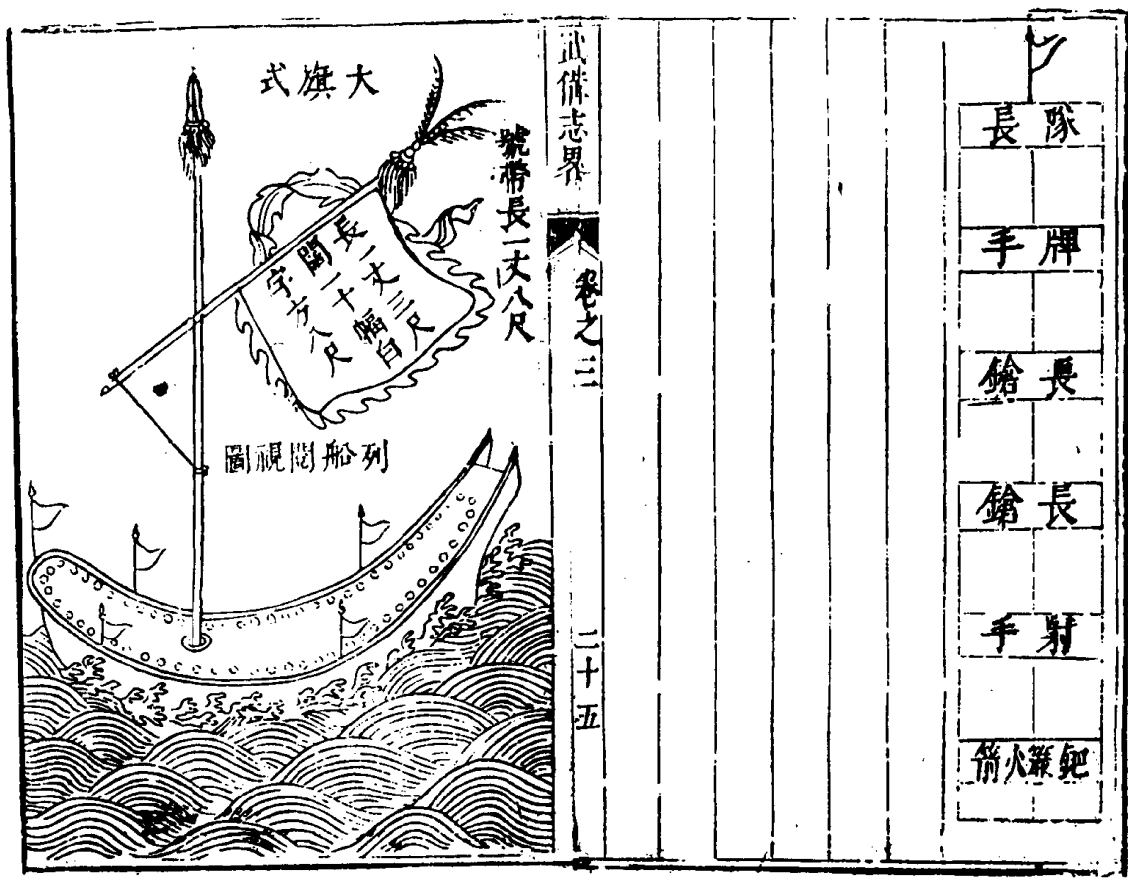 隊長
牌手
長鎗
長鎗
射手
鈀火箭
武備志畧
卷之三
二十五
大旗式
號帶長一丈八尺
長一丈三尺
闊一十幅白
字方八尺
列船閱視圖